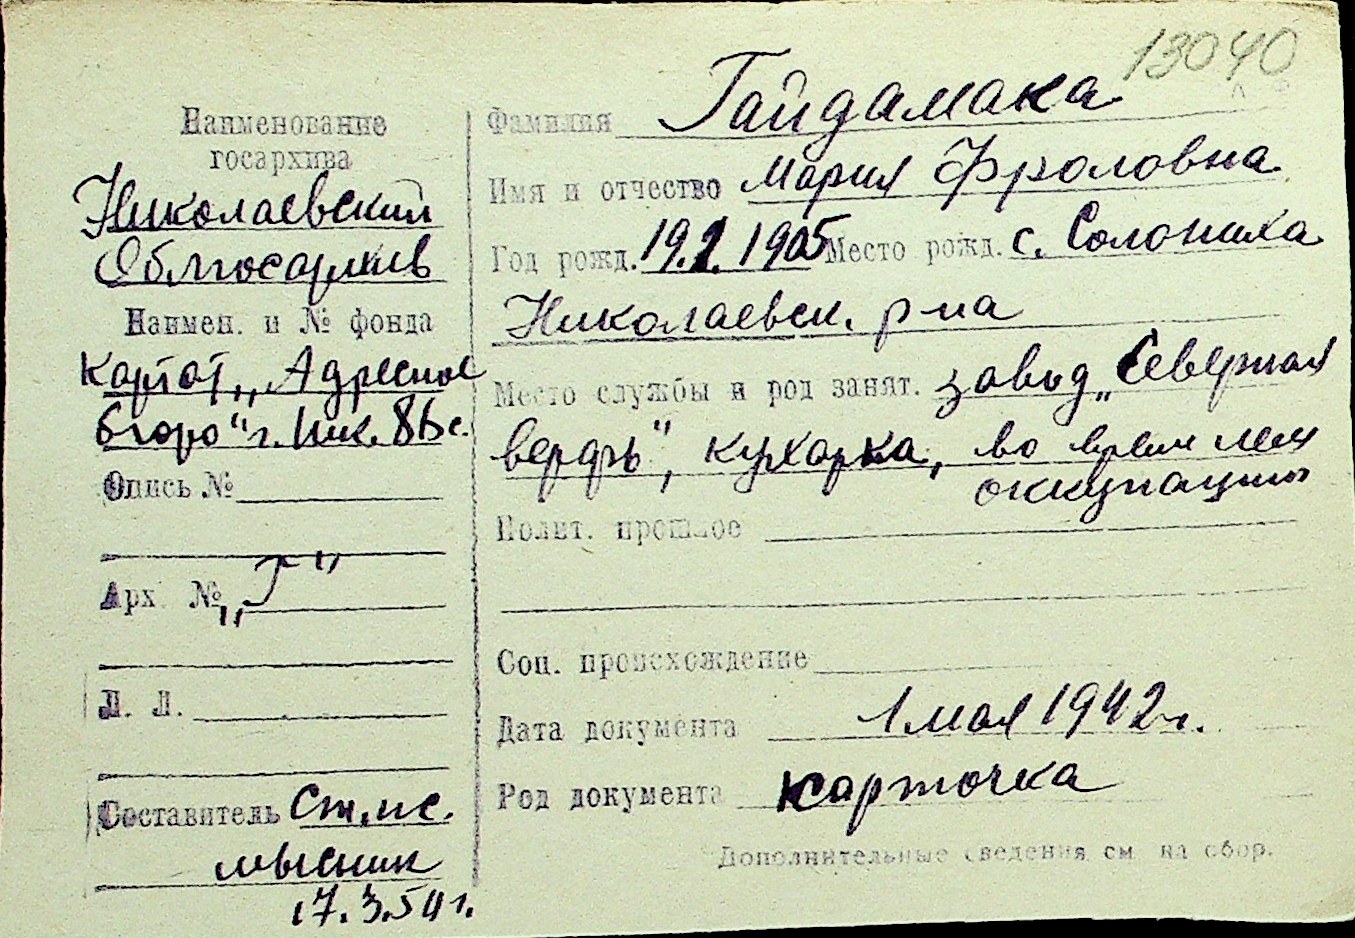 13040
Наименование
госархива
Николаевский
Облгосархив
Наимен. и № фонда
картот. „Адресное
бюро" г. Ник. 86 с.
Опись №
Арх. № „Г"
Л. Л.
Составитель Ст. н.с.
17.3.54 г.
Фамилия Гайдамака
Имя и отчество Мария Фроловна
Год рожд. 19.1.1905 Место рожд. с. Солониха
Николаевск. р-на
Место службы и род занят. завод „Северная
верфь", кухарка, во время нем
оккупации
Полит. прошлое
Соц. происхождение
Дата документа 1 мая 1942 г.
Род документа карточка
Дополнительные сведения см. на обор.